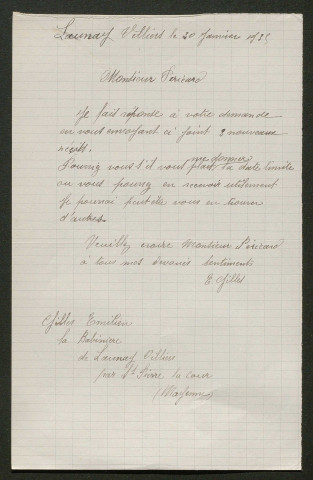 Launay Villiers le 20 Janvier 193
Monsieur Péricard
Je fait réponse à votre demande
en vous envoyant ci joint 3 nouveaux
récits.
Pouvez vous s'il vous plait me donner la date limite
ou vous pouvez en recevoir utilement
Je pourrai peut etre vous en trouver
d'autres.
Veuillez croire Monsieur Péricard
à tous mes dévoués sentiments
E Gilles
Gilles Emilien
la
de Launay Villiers
par St Pierre la cour
(Mayenne)